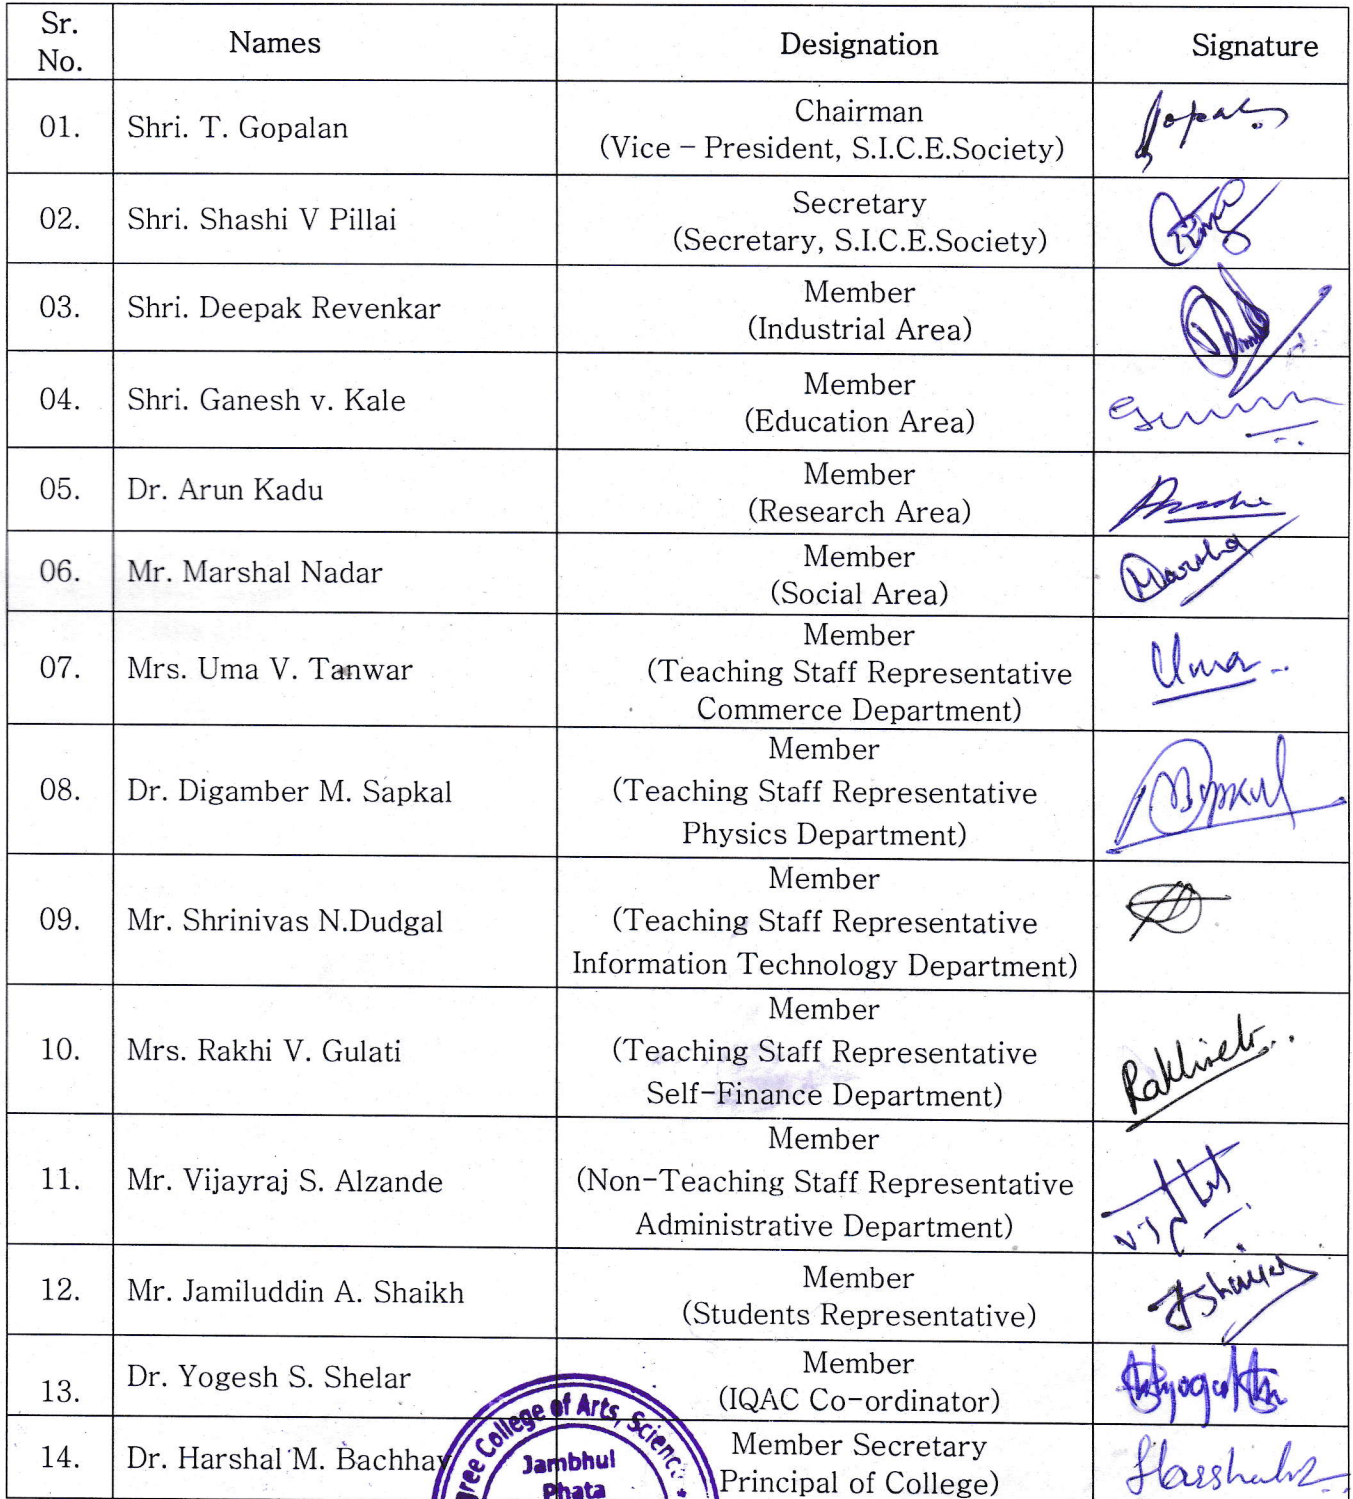 Sr. No. Names Designation Signature
01. Shri. T. Gopalan Chairman
(Vice - President, S.I.C.E.Society)
02. Shri. Shashi V Pillai Secretary
(Secretary, S.I.C.E.Society)
03. Shri. Deepak Revenkar Member
(Industrial Area)
04. Shri. Ganesh v. Kale Member
(Education Area)
05. Dr. Arun Kadu Member
(Research Area)
06. Mr. Marshal Nadar Member
(Social Area)
07. Mrs. Uma V. Tanwar Member
(Teaching Staff Representative
Commerce Department)
Uma
08. Dr. Digamber M. Sapkal Member
(Teaching Staff Representative
Physics Department)
09. Mr. Shrinivas N.Dudgal Member
(Teaching Staff Representative
Information Technology Department)
10. Mrs. Rakhi V. Gulati Member
(Teaching Staff Representative
Self-Finance Department)
11. Mr. Vijayraj S. Alzande Member
(Non-Teaching Staff Representative
Administrative Department)
12. Mr. Jamiluddin A. Shaikh Member
(Students Representative)
13. Dr. Yogesh S. Shelar Member
(IQAC Co-ordinator)
14. Dr. Harshal M. Bachhav Member Secretary
Principal of College)
College of Arts,
Jambhul
Phata